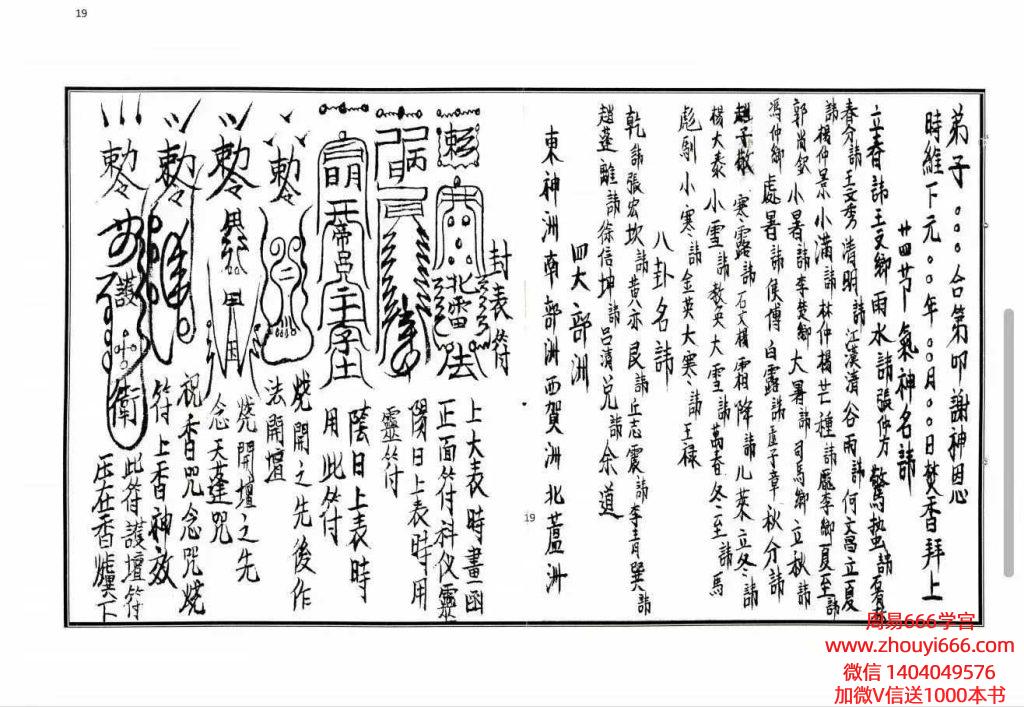 19
弟子。。。合第叩謝神恩
時維下元。。年。。月。。日焚香拜上
廿四節氣神名諱
立春諱王文卿雨水諱張仲方驚蛰諱
春分諱王文秀清明諱江漢清谷雨諱何文昌立夏
諱楊仲景小滿諱林仲楊芒種諱處李卿夏至諱
郭尚賢小暑諱李楚卿大暑諱司馬卿立秋諱
馮仲卿處暑諱侯博白露諱虛子章秋分諱
趙子敬寒露諱石文楊霜降諱儿萊立冬諱
楊大泰小雪諱教英大雪諱萬春冬至諱馬
彪馴小寒諱金英大寒諱王禄
八卦名諱
乾諱張宏坎諱黄亦艮諱丘志震諱李青巽諱
趙蓬離諱徐信坤諱呂濱兑諱余道
四大部洲
東神洲南部洲西賀洲北蘆洲
封表符
上大表時畫一函
正面符科仪靈
陽日上表時用
靈符
陰日上表時
用此符
燒開之先後作
法開壇
燒開壇之先
念天蓬咒
祝香咒念咒燒
符上香神效
此符護壇符
压在香爐下
19
周易666学宫
www.zhouyi666.com
微信 1404049576
加微V信送1000本书